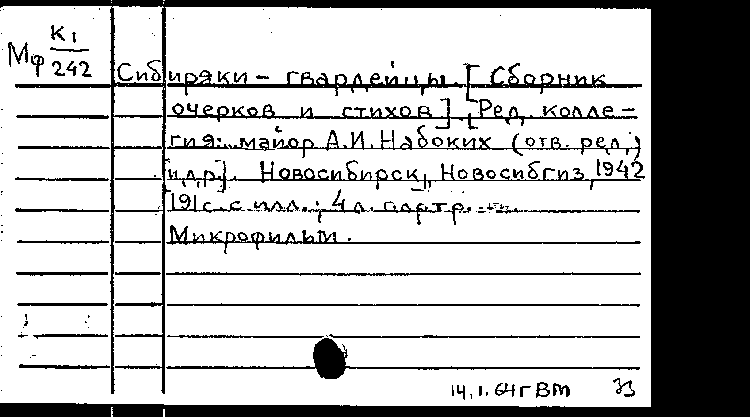 К1
Мф 242
Сибиряки – гвардейцы. [Сборник
очерков и стихов]. [Ред. колле-
гия: майор А.И. Набоких (отв. ред.)
и др.]. Новосибирск, Новосибгиз, 1942
191 с. с илл.; 4 л. портр.
Микрофильм.
14.1.64г ВМ